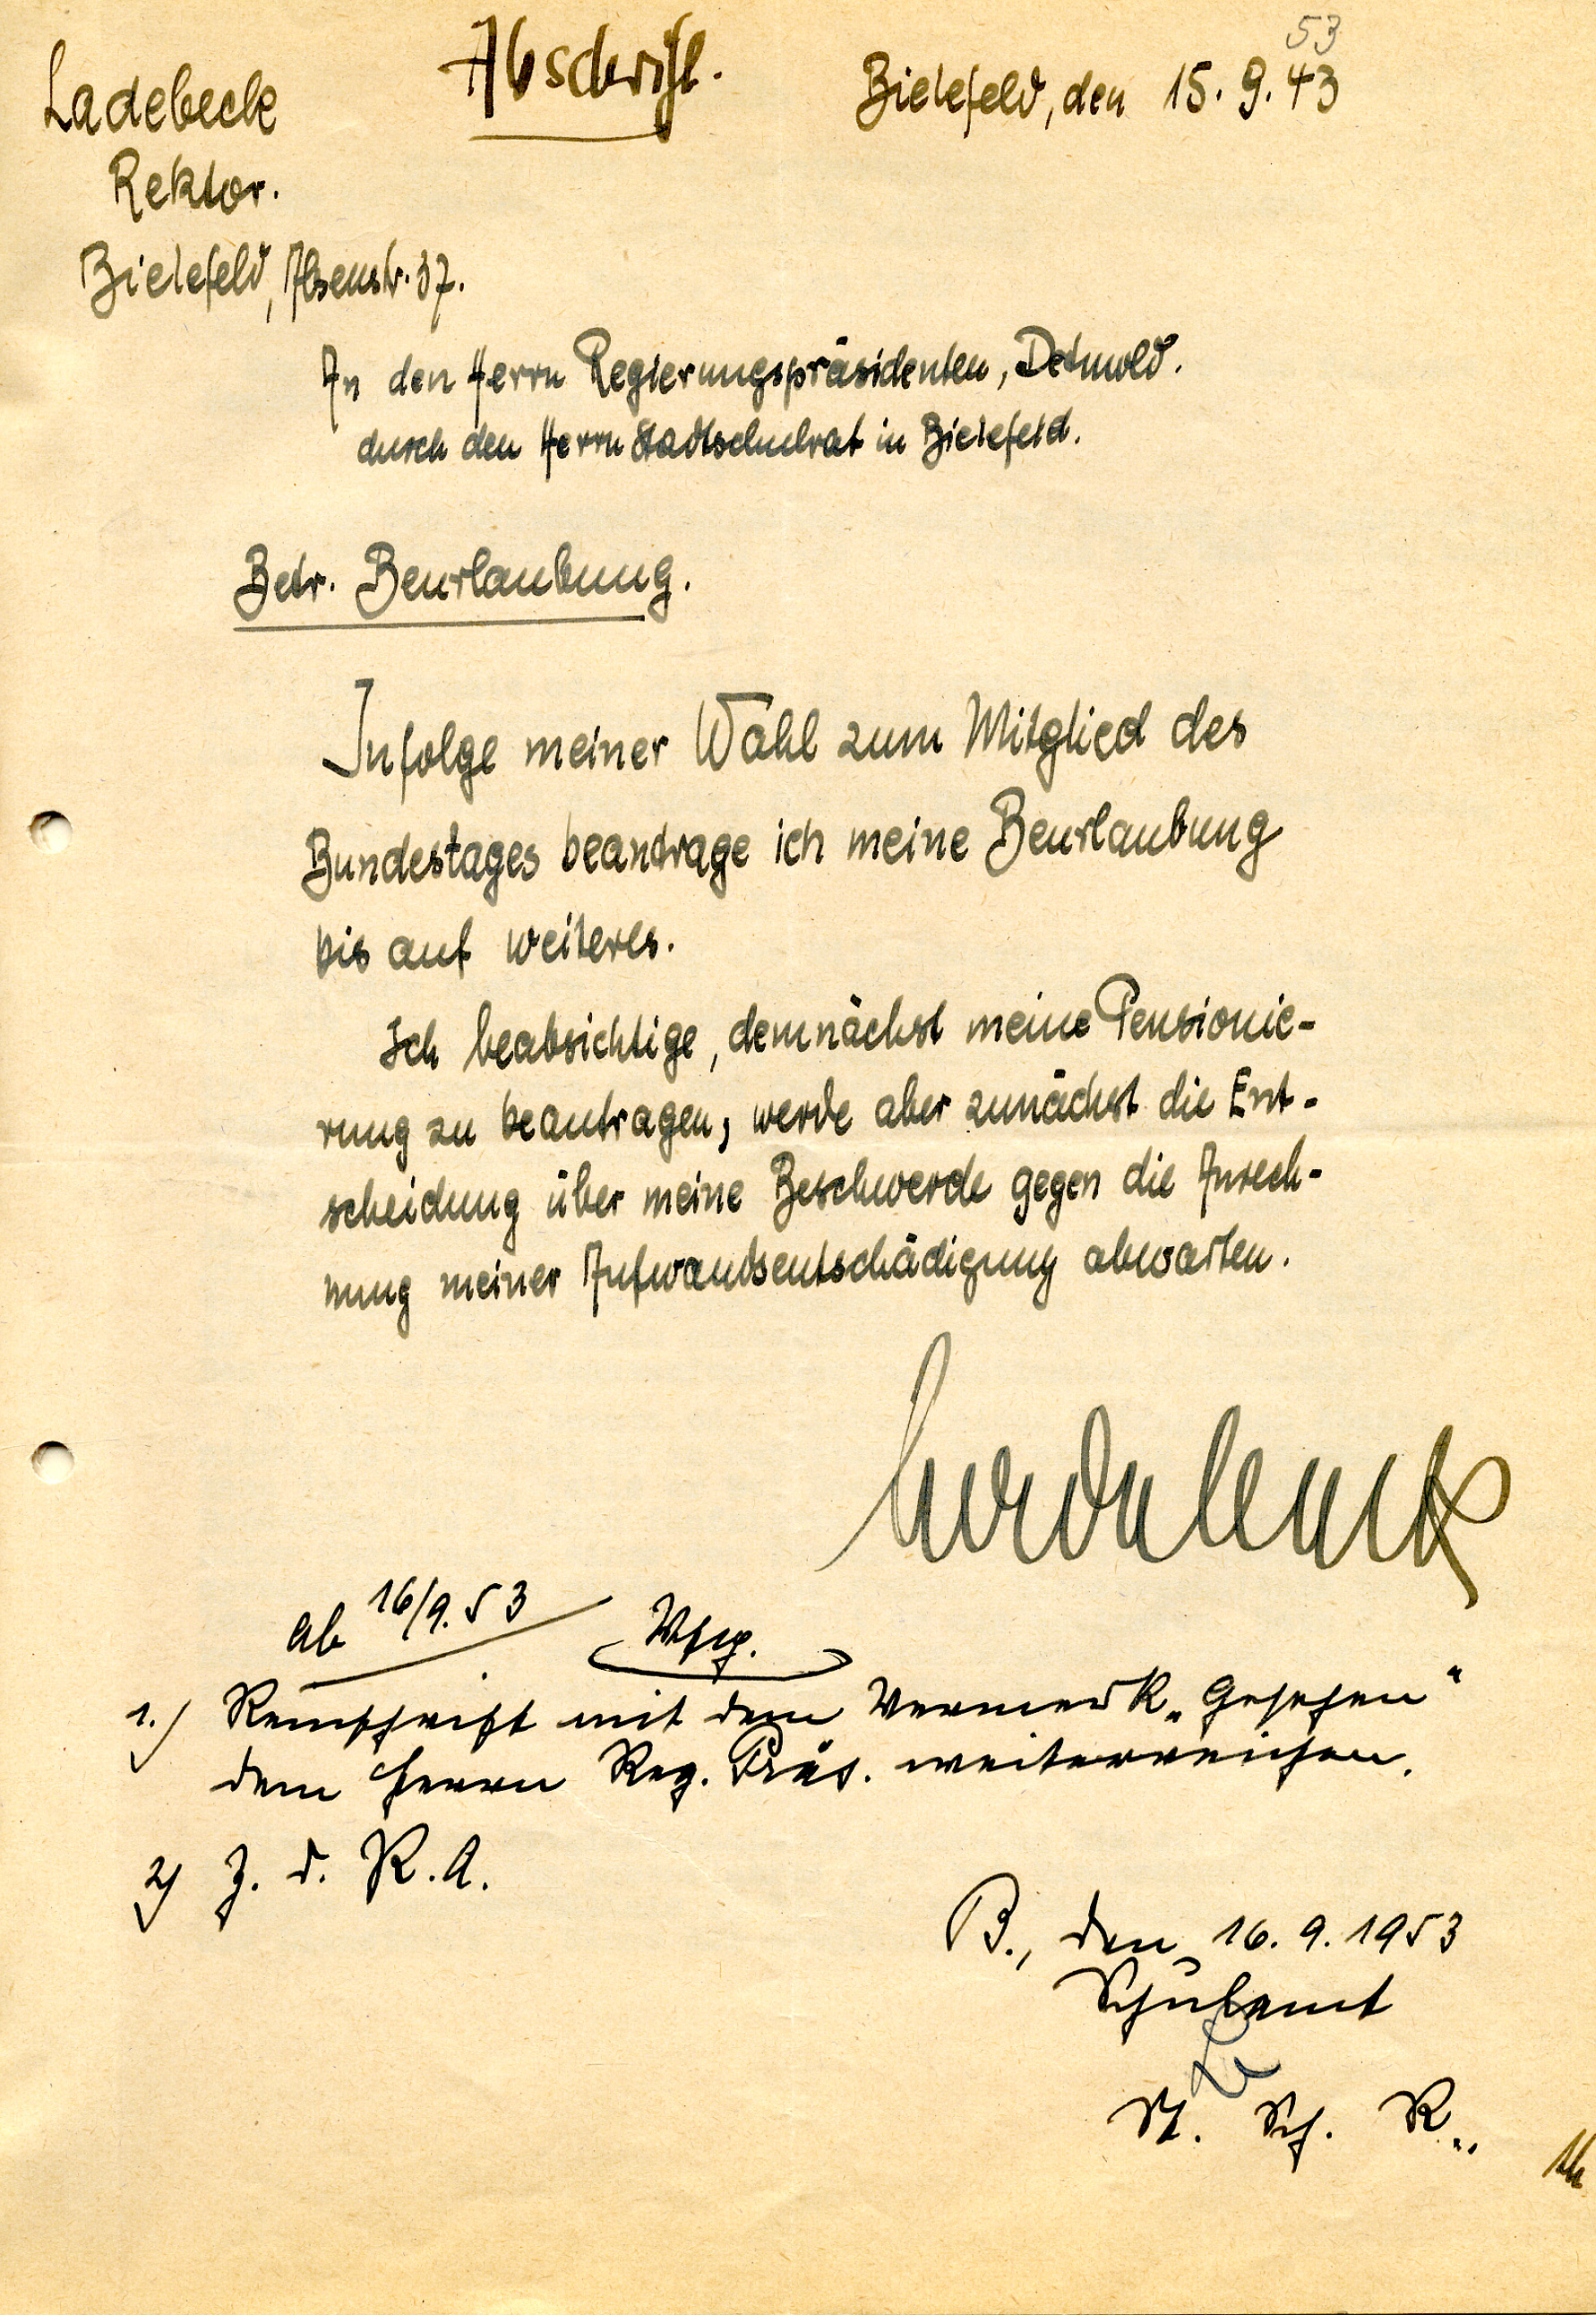 53
Ladebeck
Abschrift.
Bielefeld, den 15. 9. 43
Rektor.
Bielefeld, Absenstr. 37.
An den Herrn Regierungspräsidenten, Detmold.
durch den Herrn Stadtschulrat in Bielefeld.
Betr. Beurlaubung.
Infolge meiner Wahl zum Mitglied des
Bundestages beantrage ich meine Beurlaubung
bis auf weiteres.
Ich beabsichtige, demnächst meine Pensionie-
rung zu beantragen, werde aber zunächst die Ent-
scheidung über meine Beschwerde gegen die Anrech-
nung meiner Aufwandsentschädigung abwarten.
Ladebeck
ab 16/9. 53
Vfg.
1.) Reinschrift mit dem Vermerk „Gesehen“
dem Herrn Reg. Präs. weiterreichen.
2) Z. d. R. A.
B., den 16. 9. 1953
Schulamt
St. Sch. R.